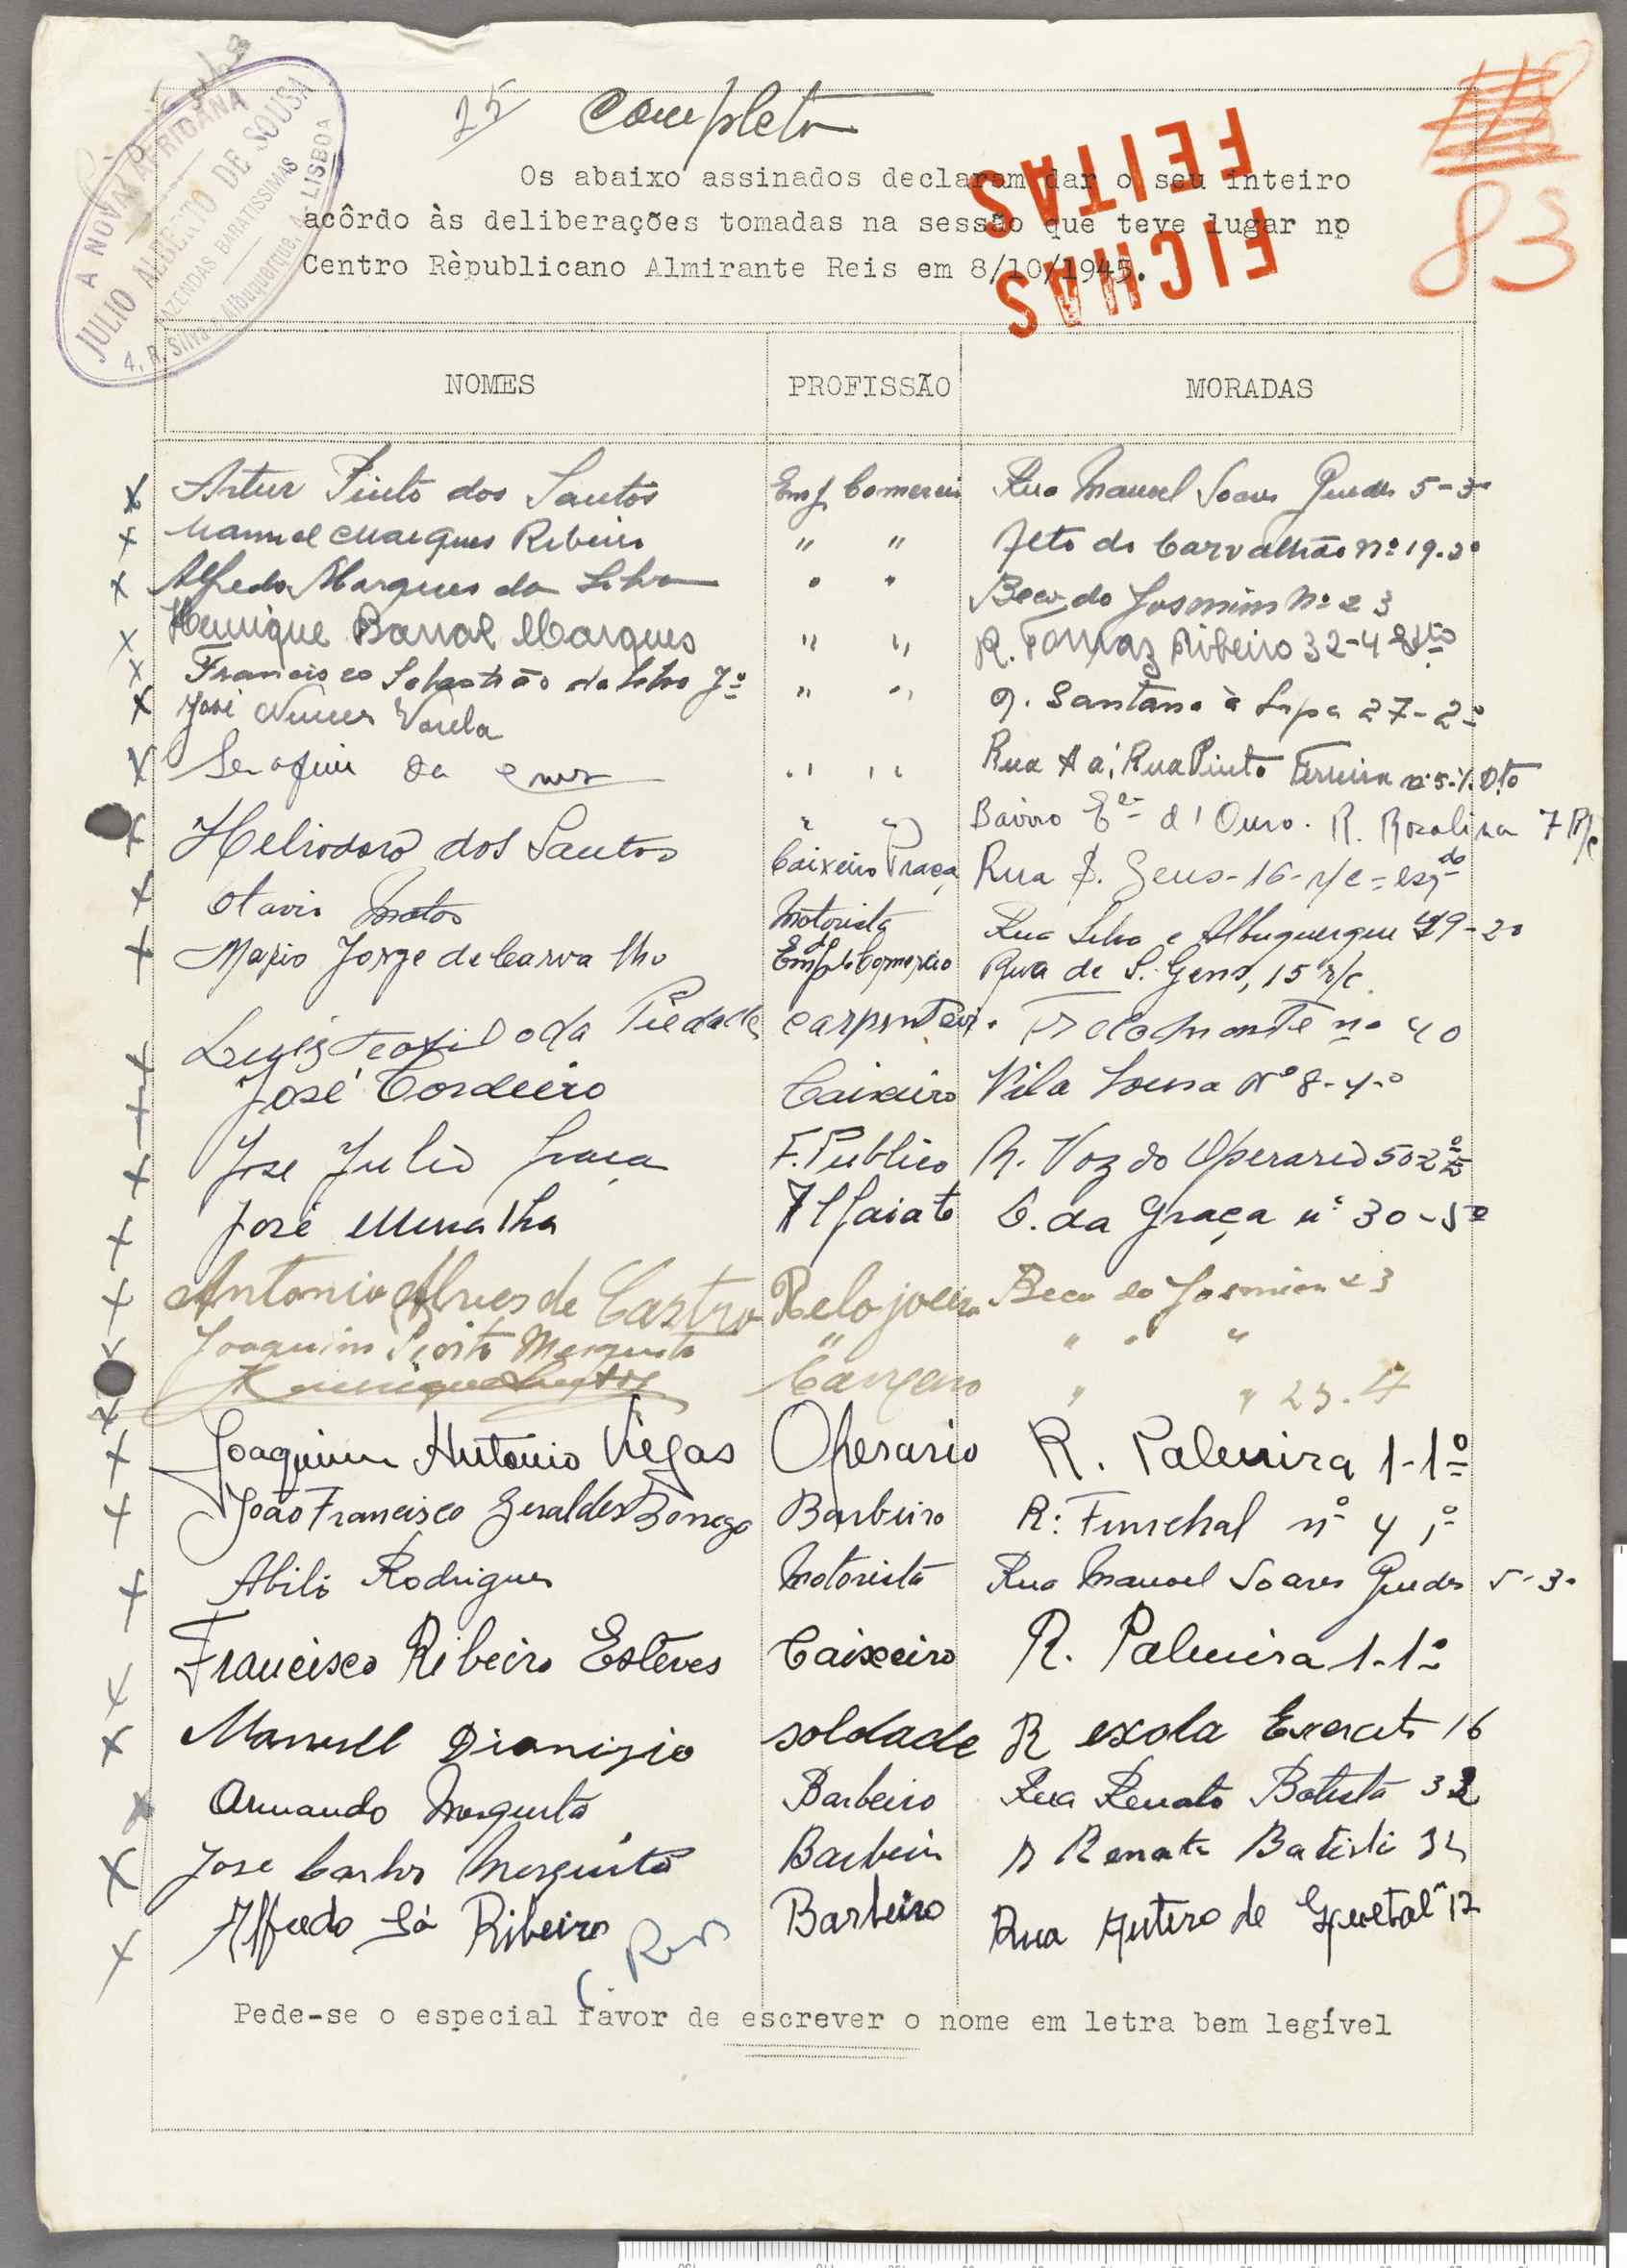 25 Completo
83
A NOVA AFRICANA
JULIO ALBERTO DE SOUSA
FAZENDAS BARATISSIMAS
4, R. Silva e Albuquerque, A - LISBOA
FICHAS
FEITAS
Os abaixo assinados declaram dar o seu inteiro
acôrdo às deliberações tomadas na sessão que teve lugar no
Centro Rèpublicano Almirante Reis em 8/10/1945.
NOMES PROFISSÃO MORADAS
Artur Pinto dos Santos Emp Comercio Rua Manuel Soares Guedes 5-3º
Manuel Marques Ribeiro " " Alto do Carvalhão nº 19-2º
Alfredo Marques da Silva " " Beco do Jasmim Nº 23
Henrique Barral Marques " " R. Tomaz Ribeiro 32-4
Francisco Sebastião da Silva Jº " " Santana à Lapa 27-2º
José Nunes Varela " " Rua A à Rua Pinto Ferreira nº 5-1. Dto
Serafim da " " Bairro d'Ouro. R. Rozalina 7 R/c
Heliodoro dos Santos Caixeiro Praça Rua S. Gens-16-r/c-esqdo
Otavio Matos Motorista Rua Silva e Albuquerque 19-2º
Mario Jorge de Carvalho Empdo Comercio Rua de S. Gens, 15 r/c
Luís Teofilo da Piedade Carpinteiro nº 40
José Cordeiro Caixeiro Vila Sousa Nº 8-4º
Jose Julio Graça F. Publico R. Voz do Operario 50-2º
José Muralha Alfaiate C. da Graça nº 30-5º
Antonio Alves de Castro Relojoeiro Beco do Jasmim 23
Joaquim Mesquita " " " "
Henrique " " 23.4
Joaquim Antonio Viegas Operario R. Palmira 1-1º
João Francisco Geraldes Borrego Barbeiro R: Funchal nº 4 1º
Abilio Rodrigues Motorista Rua Manuel Soares Guedes 5-3º
Francisco Ribeiro Esteves Caixeiro R. Palmira 1-1º
Manuell Dionizio soldade R exola Exercito 16
Armando Mesquita Barbeiro Rua Renato Batista 32
Jose Carlos Mesquita Barbeiro R Renato Batista 32
Alfredo Sá Ribeiro Barbeiro Rua Antero de Quental 12
Pede-se o especial favor de escrever o nome em letra bem legível